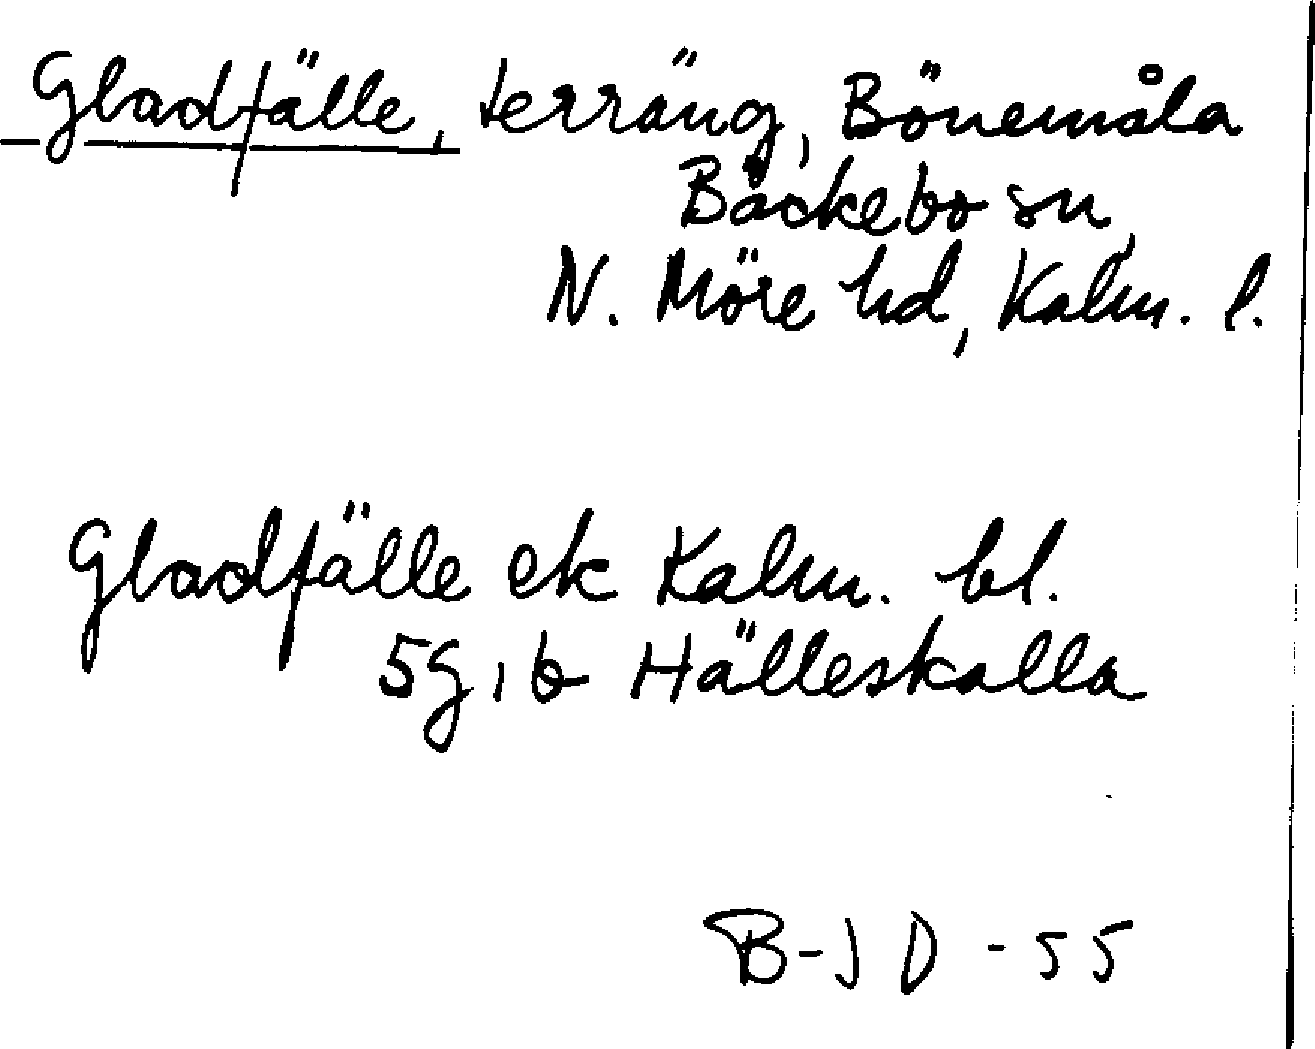 Gladfälle, terräng, Bönemåla
Bäckebo sn,
N. Möre hd, Kalm. l.
Gladfälle ek Kalm. bl.
5g, b Hälleskalla
B-J D -55